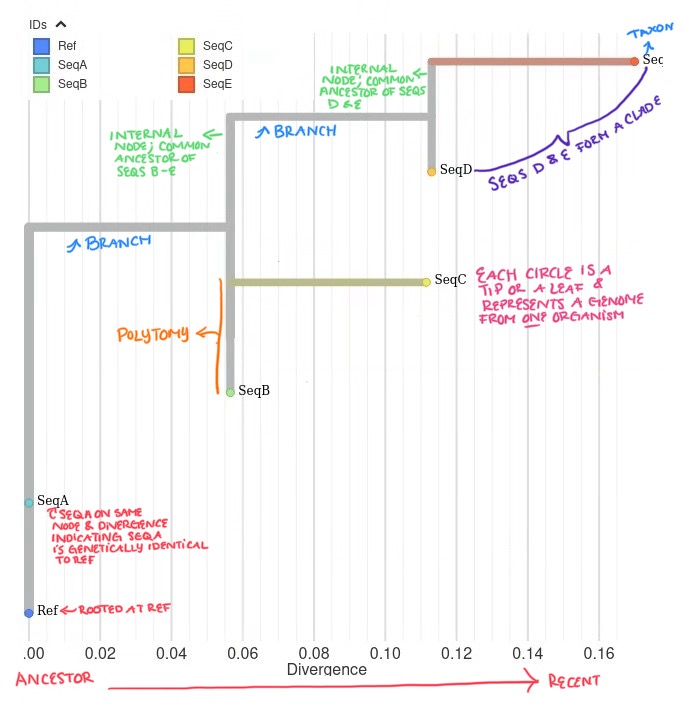 IDs
Ref
SeqA
SeqB
SeqC
SeqD
SeqE
TAXON
Sec
INTERNAL
NODE; COMMON
ANCESTOR OF SEQS
D & E
BRANCH
INTERNAL
NODE; COMMON
ANCESTOR OF
SEQS B-E
SeqD
SEQS D & E FORM A CLADE
BRANCH
SeqC
EACH CIRCLE IS A
TIP OR A LEAF &
REPRESENTS A GENOME
FROM ONE ORGANISM
POLYTOMY
SeqB
SeqA
SEQA ON SAME
NODE & DIVERGENCE
INDICATING SEQA
IS GENETICALLY IDENTICAL
TO REF
Ref
ROOTED AT REF
.00 0.02 0.04 0.06 0.08 0.10 0.12 0.14 0.16
Divergence
ANCESTOR
RECENT